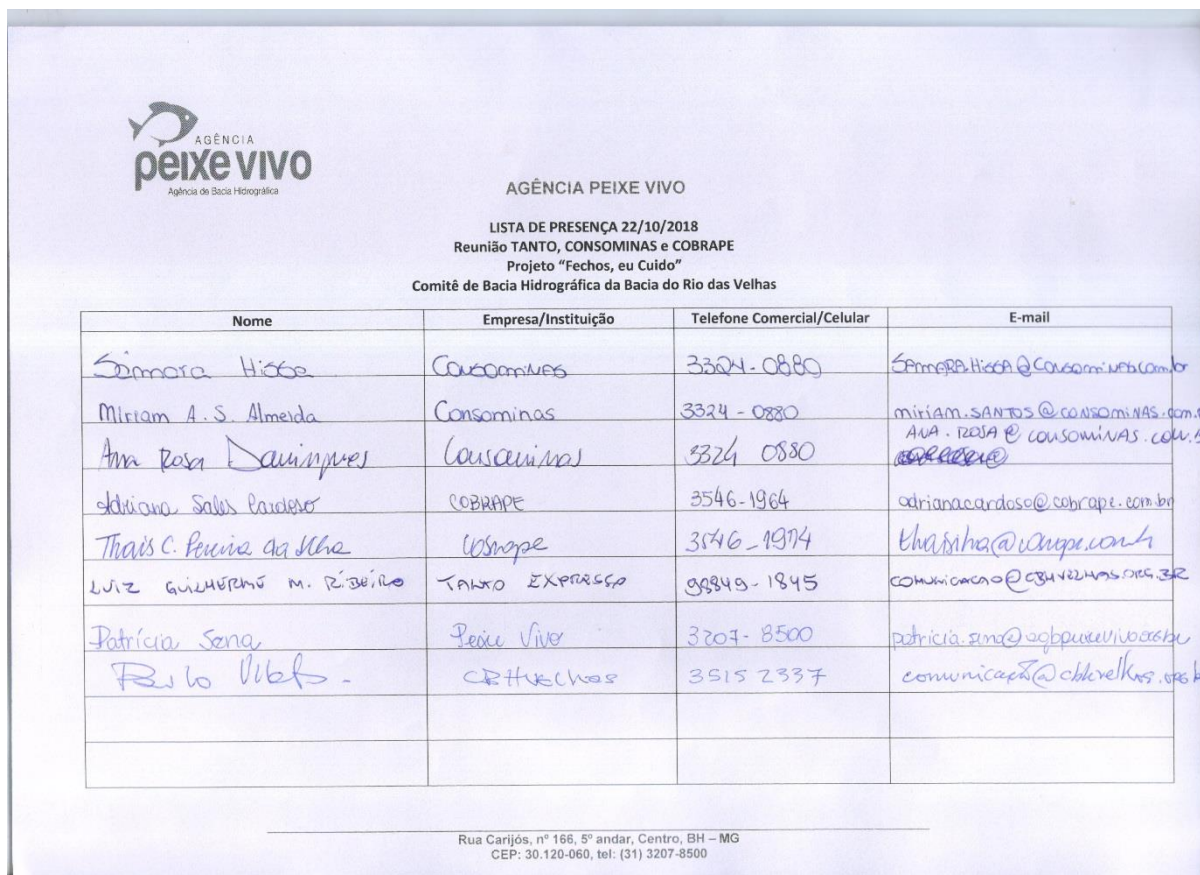 AGÊNCIA
peixe vivo
Agência de Bacia Hidrográfica
AGÊNCIA PEIXE VIVO
LISTA DE PRESENÇA 22/10/2018
Reunião TANTO, CONSOMINAS e COBRAPE
Projeto “Fechos, eu Cuido”
Comitê de Bacia Hidrográfica da Bacia do Rio das Velhas
Nome Empresa/Instituição Telefone Comercial/Celular E-mail
Samora Hissa Consominas 3324-0880 SAMORA.HissA@Consominas.com.br
Miriam A. S. Almeida Consominas 3324-0880 miriAm.SANTOS@CONSOMINAS.com.
ANA.ROSA@consominas.com.b
Ana Rosa Consominas 3324 0880
Adriana Sales Cardoso COBRAPE 3546-1964 adrianacardoso@cobrape.com.br
Thais C. Pereira da Silva Cobrape 3546-1974
LUIZ GUILHERME M. RIBEIRO TANTO EXPRESSO 98849-1845 COMUNICACAO@CBHVELHAS.ORG.BR
Patrícia Sena Peixe Vivo 3207-8500
CBHVelhas 3515 2337 comunicação@cbhvelhas.org.b
Rua Carijós, nº 166, 5º andar, Centro, BH – MG
CEP: 30.120-060, tel: (31) 3207-8500